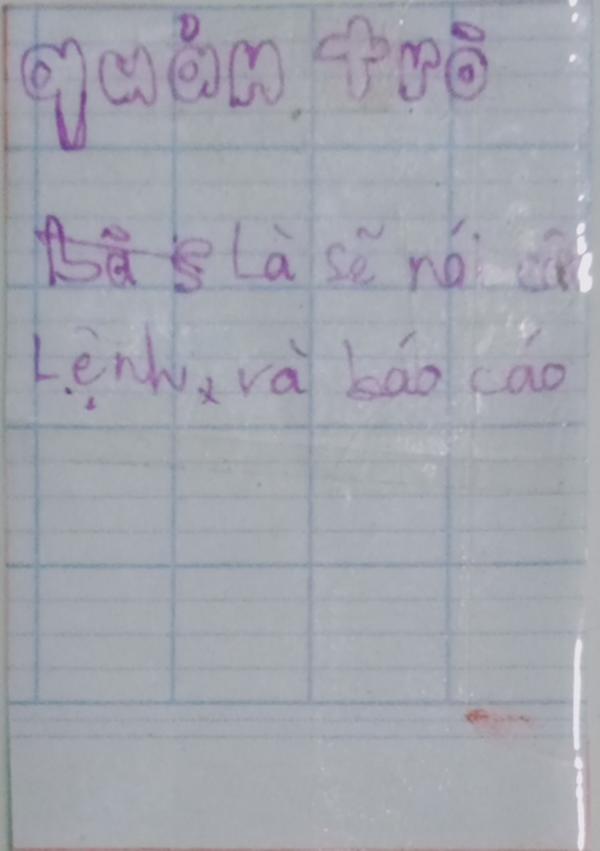 quản trò
Là sẽ nói
Lệnh, và báo cáo